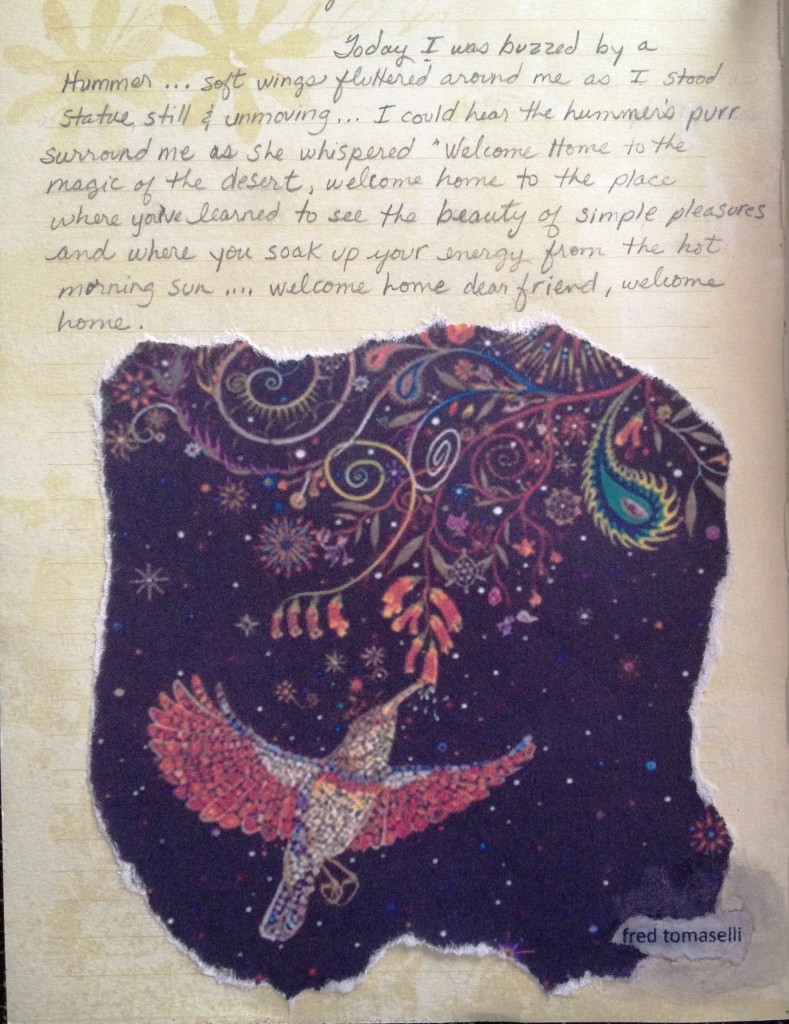 Today I was buzzed by a
Hummer... soft wings fluttered around me as I stood
statue still & unmoving... I could hear the hummer's purr
surround me as she whispered "Welcome Home to the
magic of the desert, welcome home to the place
where you've learned to see the beauty of simple pleasures
and where you soak up your energy from the hot
morning sun.... welcome home dear friend, welcome
home.
fred tomaselli